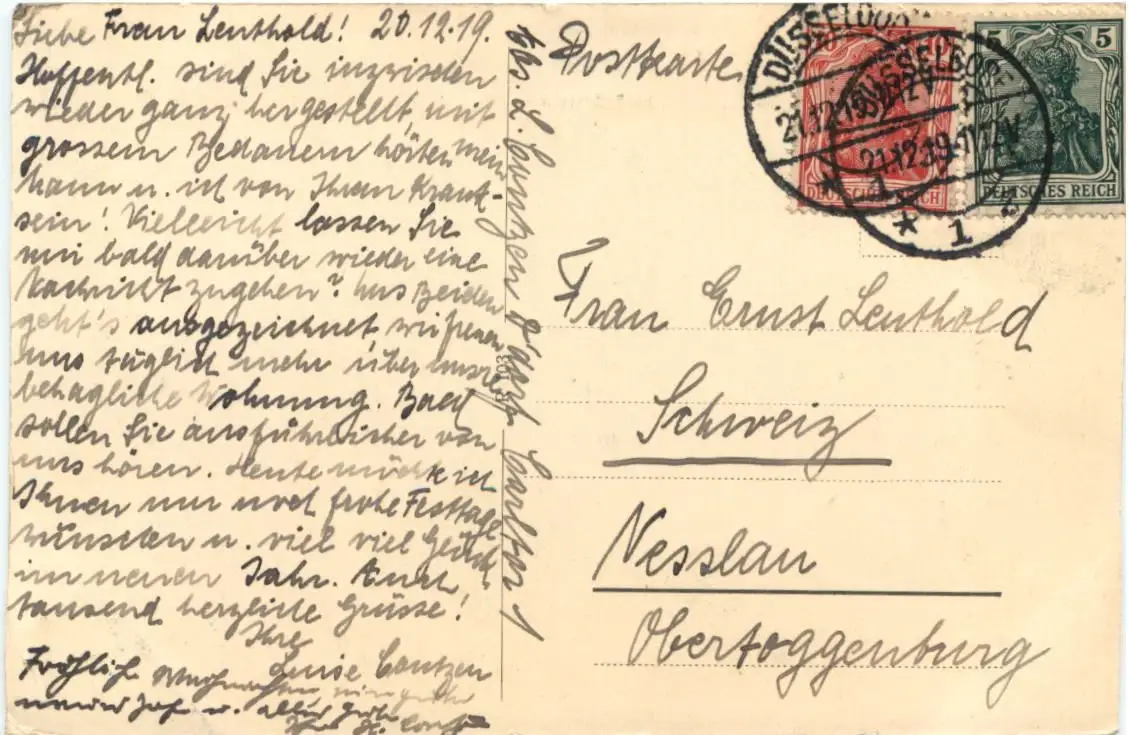 Liebe Frau Leuthold! 20.12.19.
Hoffentl. sind Sie inzwischen
wieder ganz hergestellt, mit
grossem Bedauern hörten mein
Mann u. ich von Ihrem Krank-
sein! Vielleicht lassen Sie
mir bald darüber wieder eine
Nachricht zugehen? Uns Beiden
geht's ausgezeichnet wir freuen
uns täglich mehr über unsre
behagliche Wohnung. Bald
sollen Sie ausführlicher von
uns hören. Heute möchte ich
Ihnen nur noch frohe Festtage
wünschen u. viel viel Glück
im neuen Jahr. Auch
tausend herzliche Grüsse!
Ihre
Luise Contzen
Fröhliche Weihnachten ein gutes
neues Jahr u. alles Gute
Ihr H. Contzen
Abs. L. Contzen D'dorf
Postkarte
DÜSSELDORF
21.12.19
* 1
DÜSSELDORF
21.12.19.11-12V
* 1
10
DEUTSCHES REICH
5 5
DEUTSCHES REICH
Frau Ernst Leuthold
Schweiz
Nesslau
Obertoggenburg